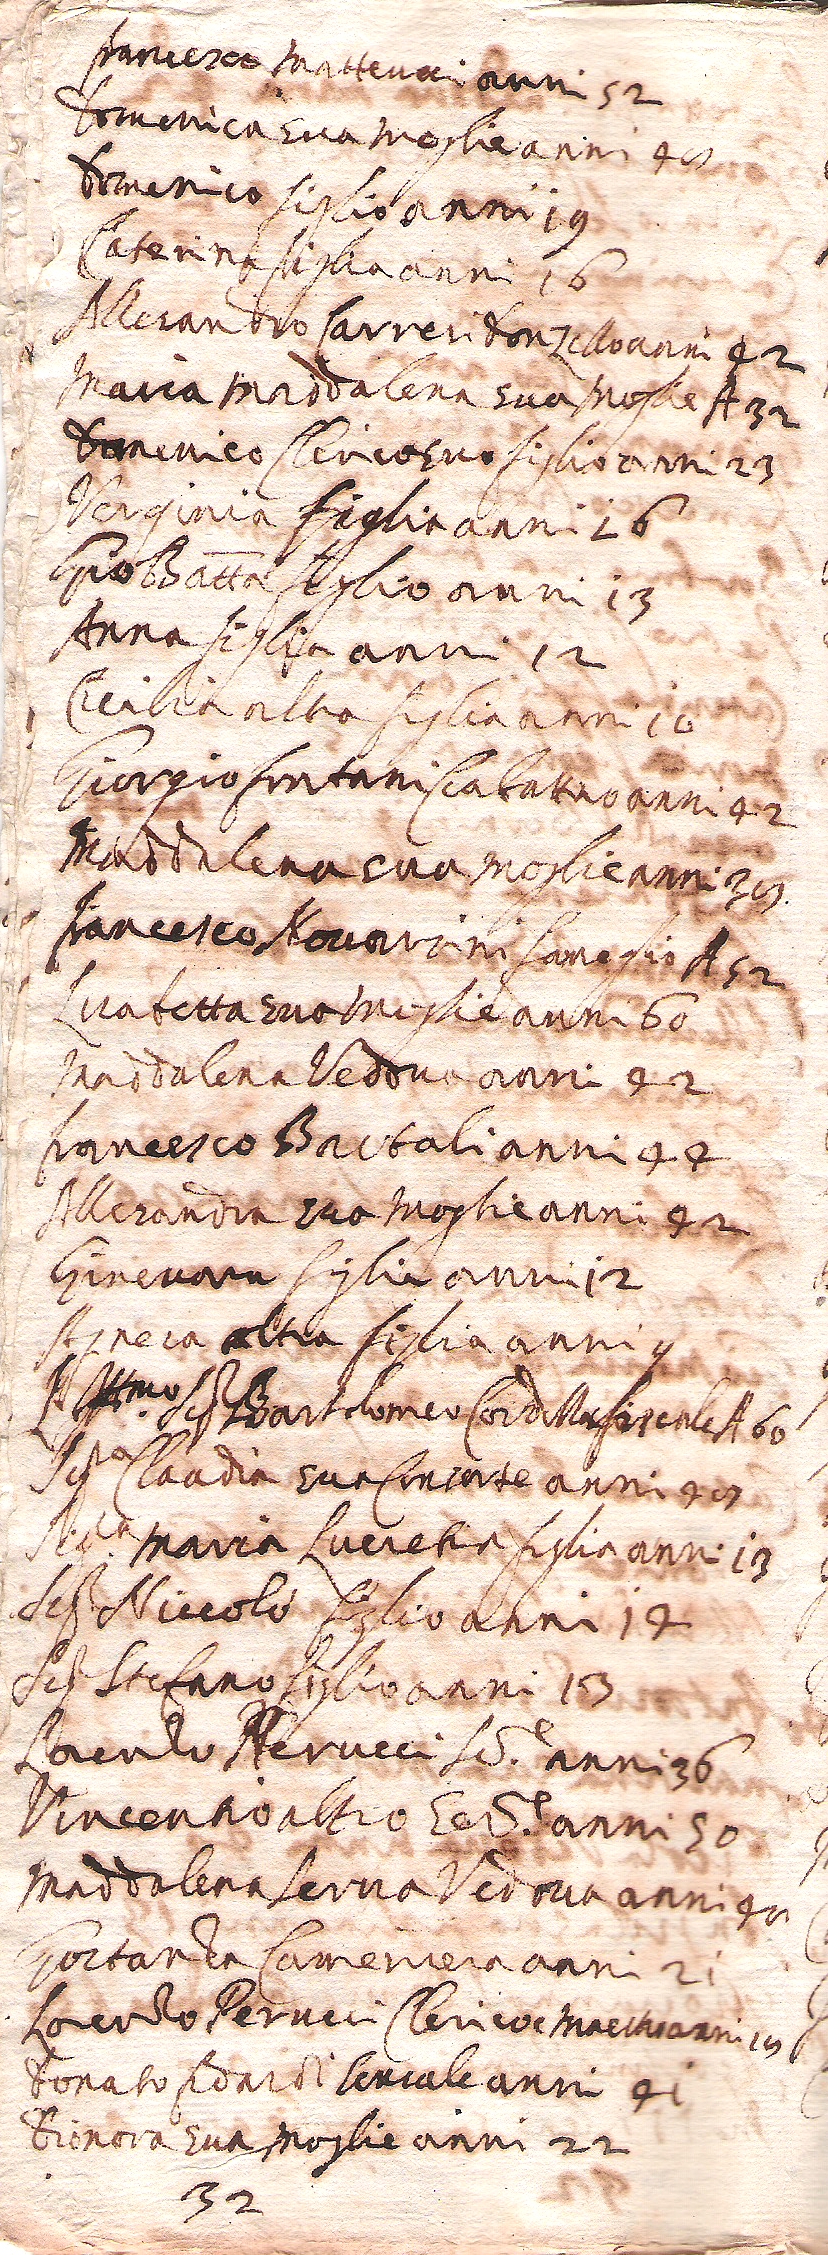 francesco Matteucci anni 52
Domenica sua moglie anni 45
Domenico figlio anni 19
Caterina figlia anni 16
Allesandro Carreri Donzello anni 42
Maria Maddalena sua moglie A 32
Domenico Clerico suo figlio anni 23
Verginia figlia anni 16
Gio Batta figlio anni 13
Anna figlia anni 12
Cicilia altra figlia anni 10
Giorgio fontani anni 42
Maddalena sua moglie anni 35
francesco A 52
sua moglie anni 60
Maddalena Vedova anni 42
francesco Bartali anni 44
Allesandra sua moglie anni 42
Ginevara figlia anni 12
Agneca altra figlia anni 9
Sigr Bartolomeo fiscale A 60
Sigra Claudia sua Consorte anni 45
Sigra Maria Lucretia figlia anni 13
Sigr Niccolò figlio anni 14
Sigr Stefano figlio anni 13
Lorenzo Perucci anni 36
Vincentio altro anni 50
Maddalena Serva Vedova anni 45
Gostanza Cameriera anni 21
Lorenzo Perucci Clerico anni 15
Donato anni 41
Dionora sua moglie anni 22
32